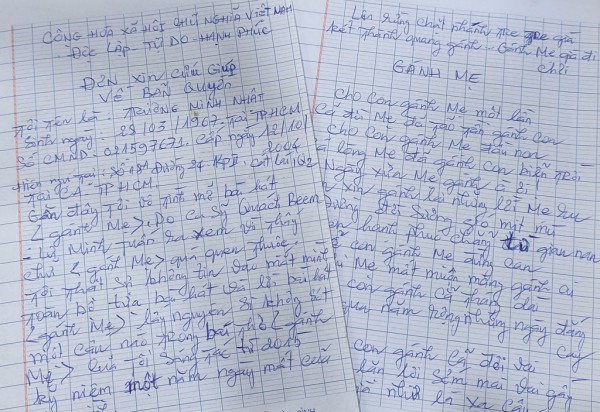 CỘNG HÒA XÃ HỘI CHỦ NGHĨA VIỆT NAM
Độc Lập - Tự DO - HẠNH PHÚC
ĐƠN XIN CỨU GIÚP
VỀ BẢN QUYỀN
Tôi tên là: TRƯƠNG MINH NHẬT
Sinh ngày: 28/03/1967. Tại TPHCM
Số CMND: 021597631. Cấp ngày 12/10/
2004
Tại CA - TPHCM.
Gần đây tôi vô tình mở bài hát
< gánh Mẹ >. Do ca sỹ Quách Beem
- Lý Minh Tuấn ra xem và thấy
chữ < gánh Mẹ > quá quen thuộc.
Tôi thật sự không tin vào mắt mình
toàn bộ tựa bài hát và lời bài hát
< gánh Mẹ > lấy nguyên si không sót
một câu nào trong bài thơ < gánh
Mẹ > của tôi sáng tác từ 2015
kỷ niệm một năm ngày mất của
Lên rừng chặt nhánh tre già
kết thành quang gánh - Gánh Mẹ già đi
chơi
GÁNH MẸ
Cho con gánh Mẹ một lần
Cả đời Mẹ đã tảo tần gánh con
Cho con gánh Mẹ đầu non
lòng Mẹ đã gánh con biển trời
Ngày xưa Mẹ gánh à ơi!
xin gánh lại những lời Mẹ ru
Đường đời sương gió mịt mù
hạnh phúc chẳng từ gian nan
con gánh Mẹ đừng can
Mẹ mất muôn màng gánh ai
con gánh cả tháng dài
năm rộng những ngày đắng cay
Con gánh cả đôi vai
lần lối sớm mai vai gầy